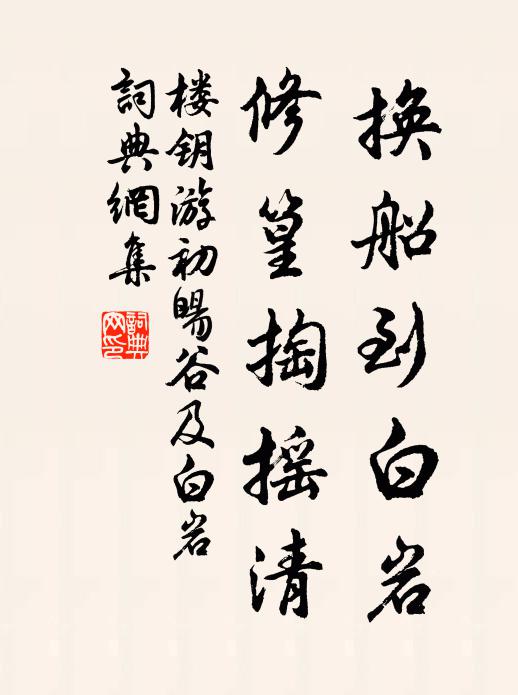 换船到白岩
修篁掏摇清
楼钥游初旸谷及白岩
词典網集
詞典
网印